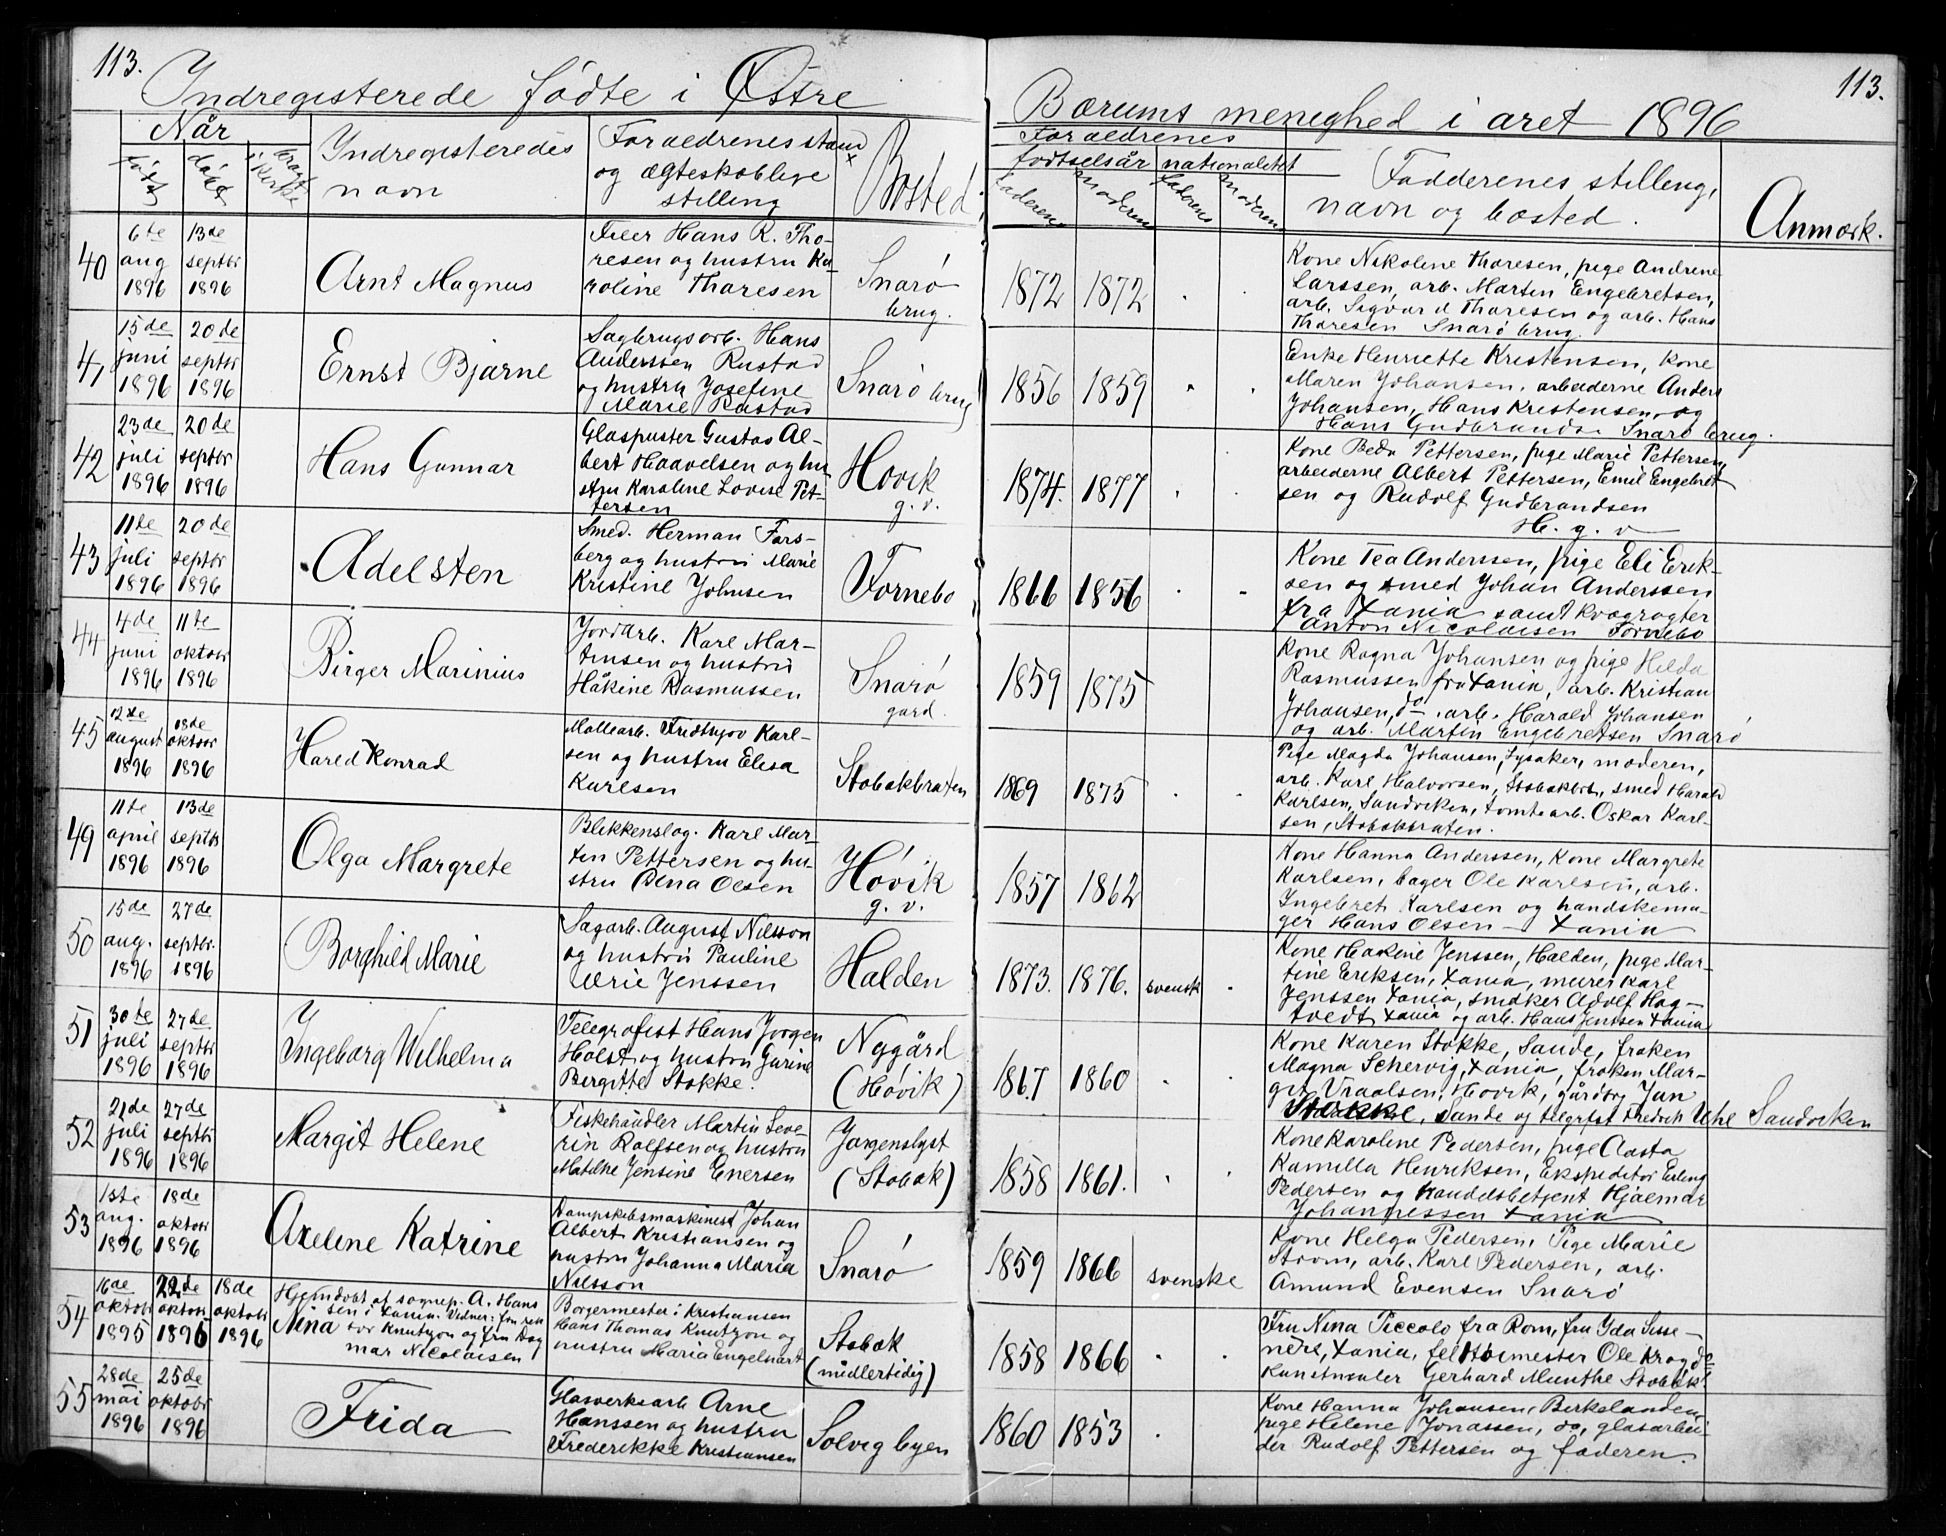 113.
Indregisterede fødte i Østre
Bærums menighed i året 1896
113.
Når
født
døbt
bragt i kirke
Indregisteredes
navn
Forældrenes stand
og ægteskablige
stilling
Bosted
Forældrenes
fødtselsår
nationalitet
faderens
moderens
faderens
moderens
Fadderenes stilling,
navn og bosted.
Anmærk.
40
6te
aug
1896
13de
septbr
1896
Arnt Magnus
Filer Hans R. Tho-
resen og hustru Ka-
roline Thoresen
Snarø
brug.
1872
1872
Kone Nikoline Thoresen, pige Andrine
Larssen, arb. Martin Engebretsen,
arb. Sigvard Thoresen og arb. Hans
Thoresen Snarø brug.
41
15de
juni
1896
20de
septbr
1896
Ernst Bjarne
Sagbrugsarb. Hans
Anderssen Rustad
og hustru Josefine
Marie Rustad
Snarø brug
1856
1859
Enke Henriette Kristensen, kone
Maren Johansen, arbeiderne Anders
Johansen, Hans Kristensen og
Hans Gudbrands. Snarø brug.
42
23de
juli
1896
20de
septbr
1896
Hans Gunnar
Glaspuster Gustav Al-
bert Haavelsen og hu-
stru Karoline Lovise Pet-
tersen
Høvik
g. v.
1874.
1877
Kone Beda Pettersen, pige Marie Pettersen,
arbeiderne Albert Pettersen, Emil Engebret
sen og Rudolf Gudbrandsen
H. g. v
43
11te
juli
1896
20de
septbr
1896
Adelsten
Smed. Herman Fors-
berg og hustru Marie
Kristine Johnsen
Fornebo
1866
1856
Kone Tea Anderssen, pige Eli Erik-
sen og smed Johan Anderssen
fra Xania samt kvægrøgter
Anton Nicolaisen Fornebo
44
4de
juni
1896
11te
oktobr
1896
Birger Marinius
Jordarb. Karl Mar-
tinsen og hustru
Håkine Rasmussen
Snarø
gård.
1859
1875
Kone Ragna Johansen og pige Hilda
Rasmussen fra Xania, arb. Kristian
Johansen, do. arb. Harald Johansen
og arb. Martin Engebretsen Snarø
45
12te
august
1896
18de
oktobr
1896
Harald Konrad
Møllearb. Fridthjov Karl-
sen og hustru Elisa
Karlsen
Stabækbraten
1869
1875
Pige Magda Johansen, Lysaker, moderen,
arb. Karl Halvorsen, Stabækbr., smed Harald
Karlsen, Sandviken, tomtearb. Oskar Karl-
sen, Stabækbraten.
49
11te
april
1896
13de
septbr
1896
Olga Margrete
Blikkenslag. Karl Mar-
tin Pettersen og hu-
stru Olena Olsen
Høvik
g. v.
1857
1862
Kone Hanna Anderssen, Kone Margrete
Karlsen, bager Ole Karlsen, arb.
Ingebret Karlsen og handskema-
ger Hans Olsen – Xania
50
15de
aug.
1896
27de
septbr.
1896
Borghild Marie
Sagarb. August Nilsson
og hustru Pauline
Ulrie Jenssen
Halden
1873.
1876.
svensk
Kone Hakine Jenssen, Halden, pige Mar-
tine Eriksen, Xania, murer Karl
Jenssen Xania, snidker Adolf Hag-
tvedt Xania og arb. Hans Jenssen Xania
51
30te
juli
1896
27de
septbr
1896
Ingeborg Wilhelma
Telegrafist Hans Jørgen
Holst og hustru Gurine
Bergitte Stokke.
Nygård
(Høvik)
1867
1860
Kone Karen Stokke, Sande, frøken
Magna Schervig, Xania, frøken Mar-
git Vraalsen, Høvik, gårdbr. Jan
Stokke, Sande og telegrfst Fredrich Uhl Sandviken
52
21de
juli
1896
27de
septbr
1896
Margit Helene
Fiskehandler Martin Seve-
rin Rolfsen og hustru
Matilde Jensine Enersen
Jørgenslyst
(Stabæk)
1858
1861.
Kone Karoline Pedersen, pige Aasta
Kamilla Henriksen, Ekspeditør Erling
Pedersen og handelsbetjent Hjalmar
Johannessen Xania
53
1ste
aug.
1896
18de
oktobr
1896
Axeline Katrine
Dampskibsmaskinist Johan
Albert Kristiansen og
hustru Johanna Maria
Nilsson
Snarø
1859
1866
svenske
Kone Helga Pedersen, Pige Marie
Strøm, arb. Karl Pedersen, arb.
Amund Evensen Snarø
54
16de
oktobr
1895
22de
oktobr
1895
18de
oktobr
1896
Hjemdøbt af sognep. A. Hans
sen i Xania. Vidner: fru rek
Nina
tor Knutzon og fru Dag
mar Nicolaisen
Borgermester i Kristiansen
Hans Thomas Knutzon og
hustru Maria Engelhart
Stabæk
(midlertidig)
1858
1866
Fru Nina Piccolo fra Rom, fru Ida Sisse-
ners, Xania, felthørmester Ole Krag do
Kunstmaler Gerhard Munthe Stabæk.
55
28de
mai
1896
25de
oktobr
1896
Frida
Glasverksarb Arne
Hanssen og hustru
Frederikke Kristiansen
Solvig byen
1860
1853
Kone Hanna Johansen, Birkelanden,
pige Helene Jonassen, do, glasarbei-
der Rudolf Pettersen og faderen.